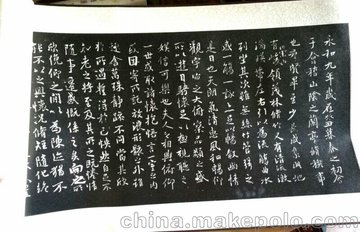 永和九年歲在癸丑暮春之初會
于會稽山陰之蘭亭脩稧事
也群賢畢至少長咸集此地
有崇山峻領茂林脩竹又有清流激
湍暎帶左右引以為流觴曲水
列坐其次雖無絲竹管弦之
盛一觴一詠亦足以暢敘幽情
是日也天朗氣清惠風和暢仰
觀宇宙之大俯察品類之盛
所以遊目騁懷足以極視聽之
娛信可樂也夫人之相與俯仰
一世或取諸懷抱悟言一室之內
或因寄所託放浪形骸之外雖
趣舍萬殊靜躁不同當其欣
於所遇暫得於己快然自足不
知老之將至及其所之既惓情
隨事遷感慨係之矣向之所
欣俛仰之間以為陳迹猶不
能不以之興懷況脩短隨化終
china.makepolo.com